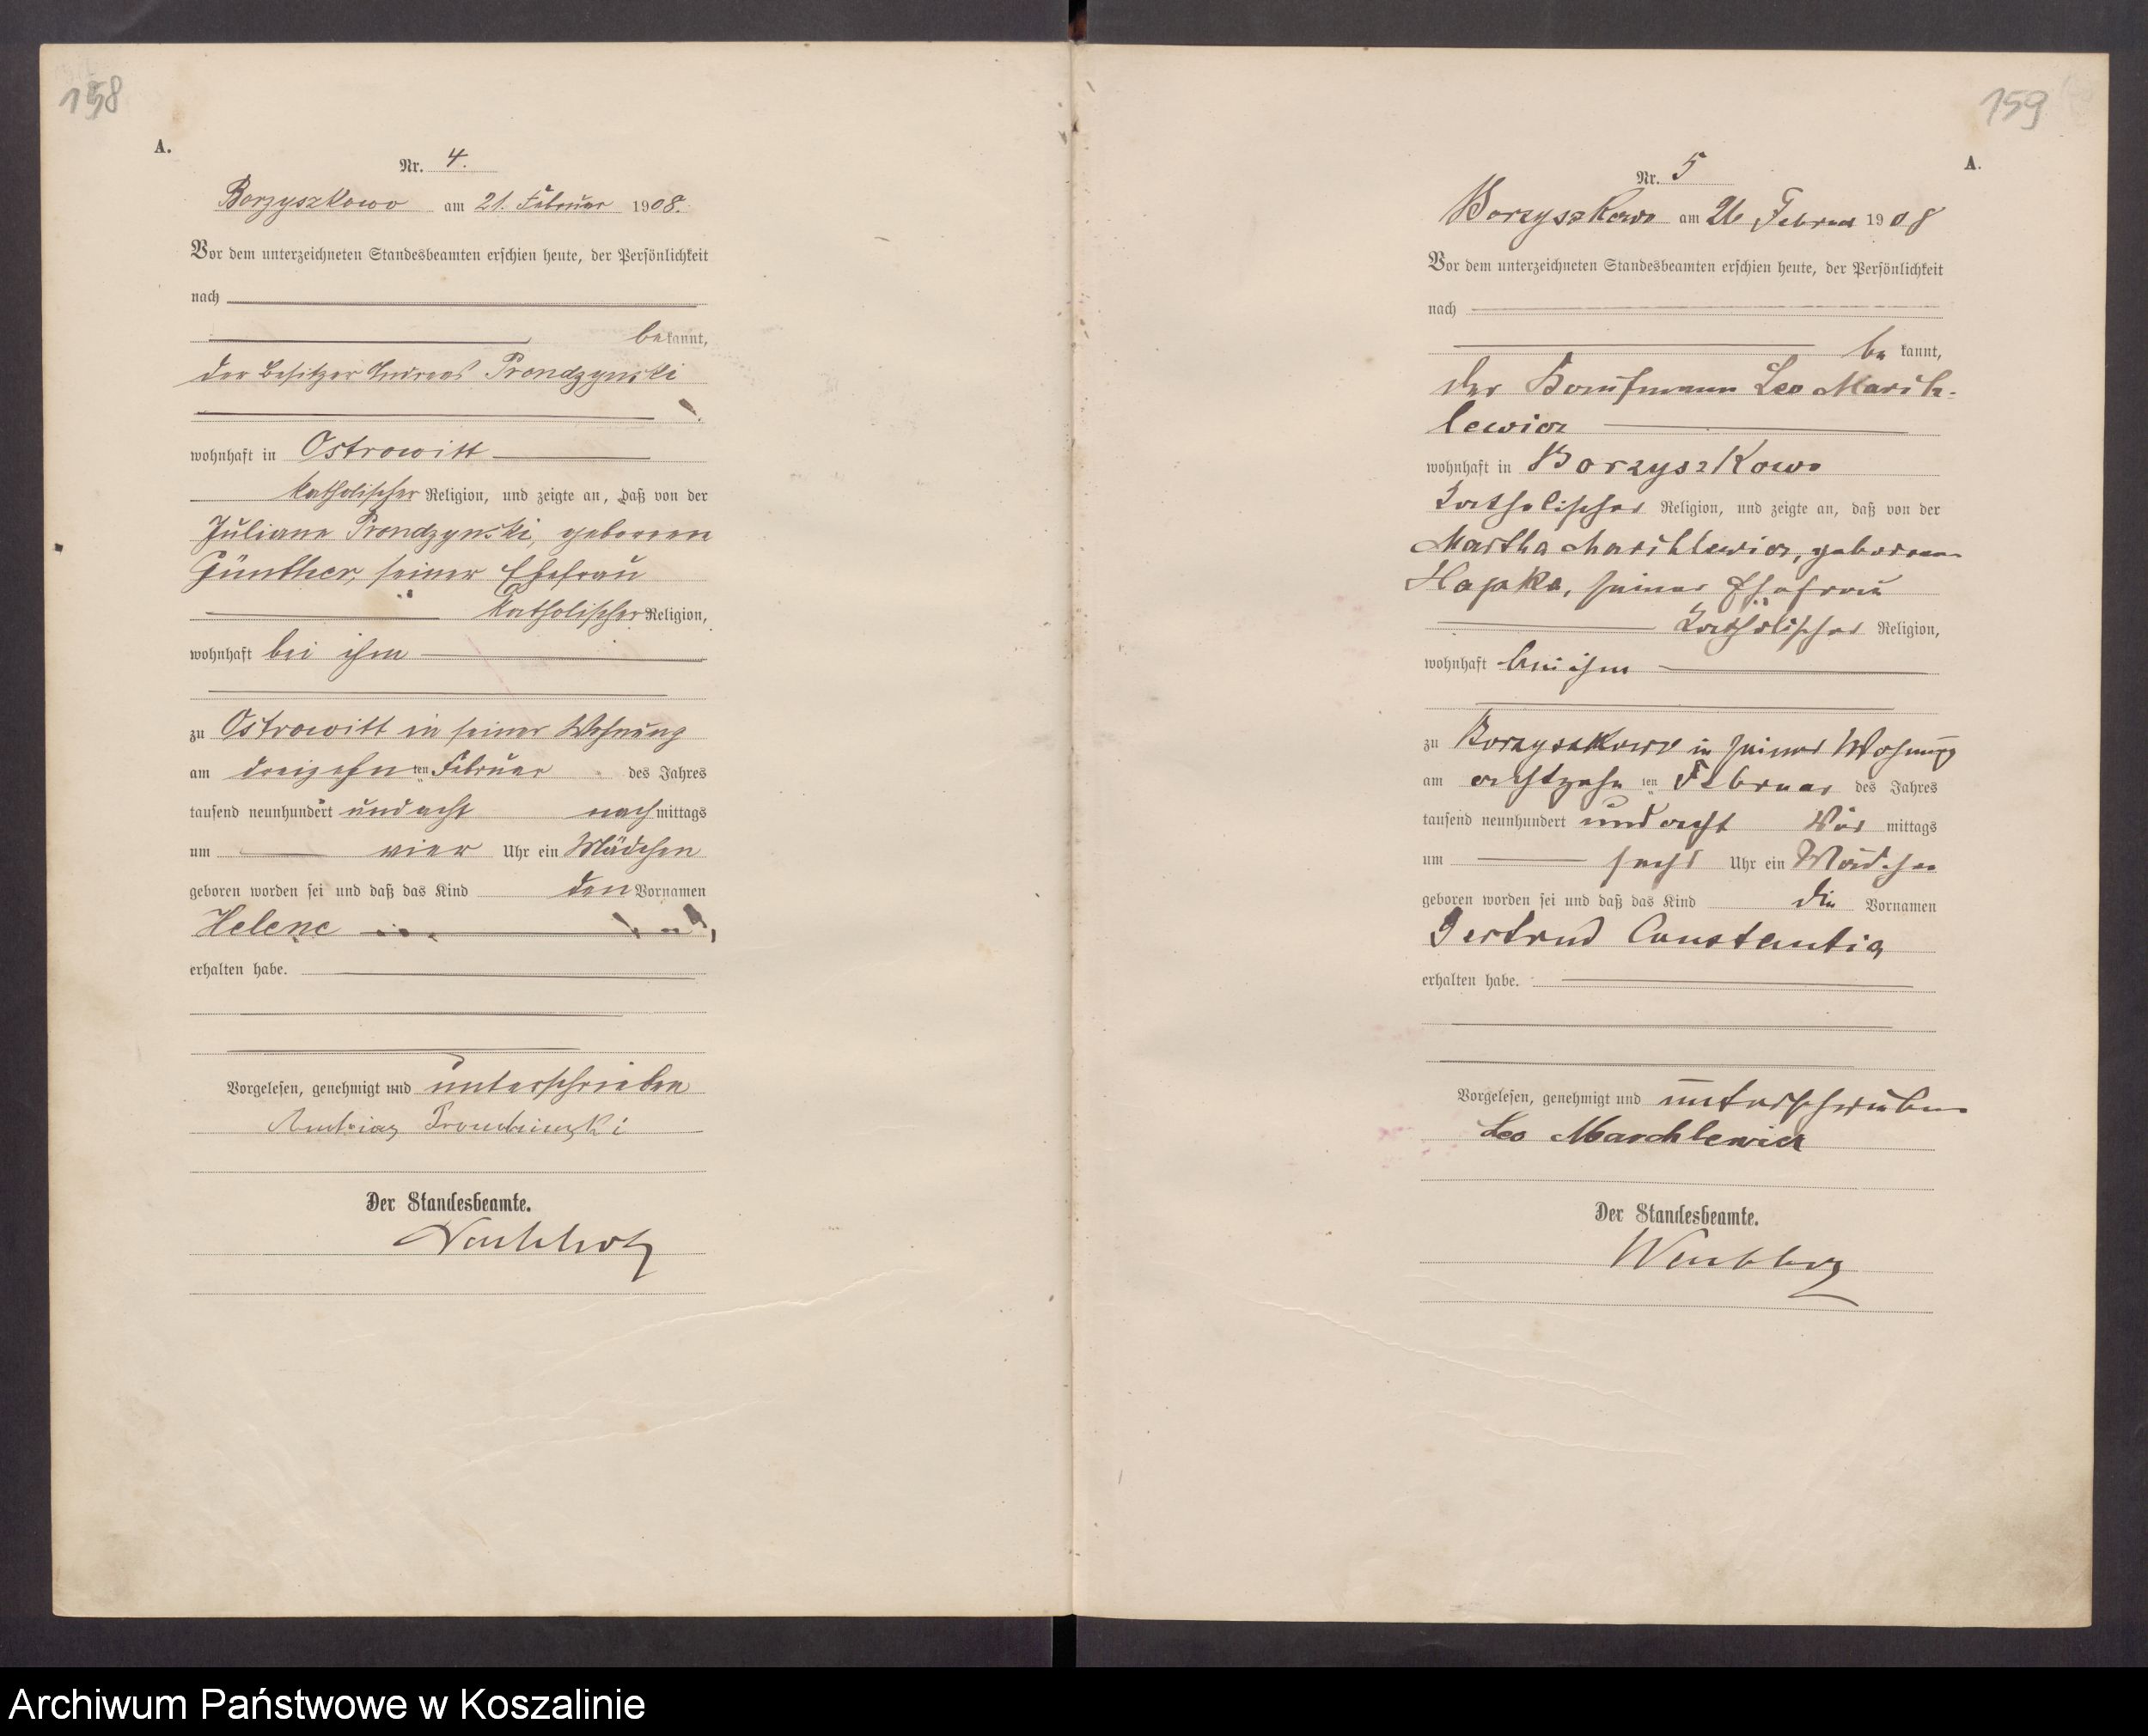 158
A.
Nr. 4.
Borzyszkowo am 21. Februar 1908.
Vor dem unterzeichneten Standesbeamten erschien heute, der Persönlichkeit
nach
bekannt,
der Besitzer Andreas Prondzynski
wohnhaft in Ostrowitt
katholischer Religion, und zeigte an, daß von der
Juliane Prondzynski, geborenen
Günther, seiner Ehefrau
katholischer Religion,
wohnhaft bei ihm
zu Ostrowitt in seiner Wohnung
am dreizehnten Februar des Jahres
tausend neunhundert und acht nachmittags
um vier Uhr ein Mädchen
geboren worden sei und daß das Kind den Vornamen
Helene
erhalten habe.
Vorgelesen, genehmigt und unterschrieben
Der Standesbeamte.
159
A.
Nr. 5
Borzyszkowo am 26 Februar 1908
Vor dem unterzeichneten Standesbeamten erschien heute, der Persönlichkeit
nach
bekannt,
der Kaufmann Leo Marich-
lewicz
wohnhaft in Borzyszkowo
katholischer Religion, und zeigte an, daß von der
Martha Marichlewicz, geborenen
Hapka, seiner Ehefrau
katholischer Religion,
wohnhaft bei ihm
zu Borzyszkowo in seiner Wohnung
am achtzehnten Februar des Jahres
tausend neunhundert und acht Vormittags
um sechs Uhr ein Mädchen
geboren worden sei und daß das Kind die Vornamen
Gertrud Constantia
erhalten habe.
Vorgelesen, genehmigt und unterschrieben
Leo Marchlewicz
Der Standesbeamte.
Archiwum Państwowe w Koszalinie